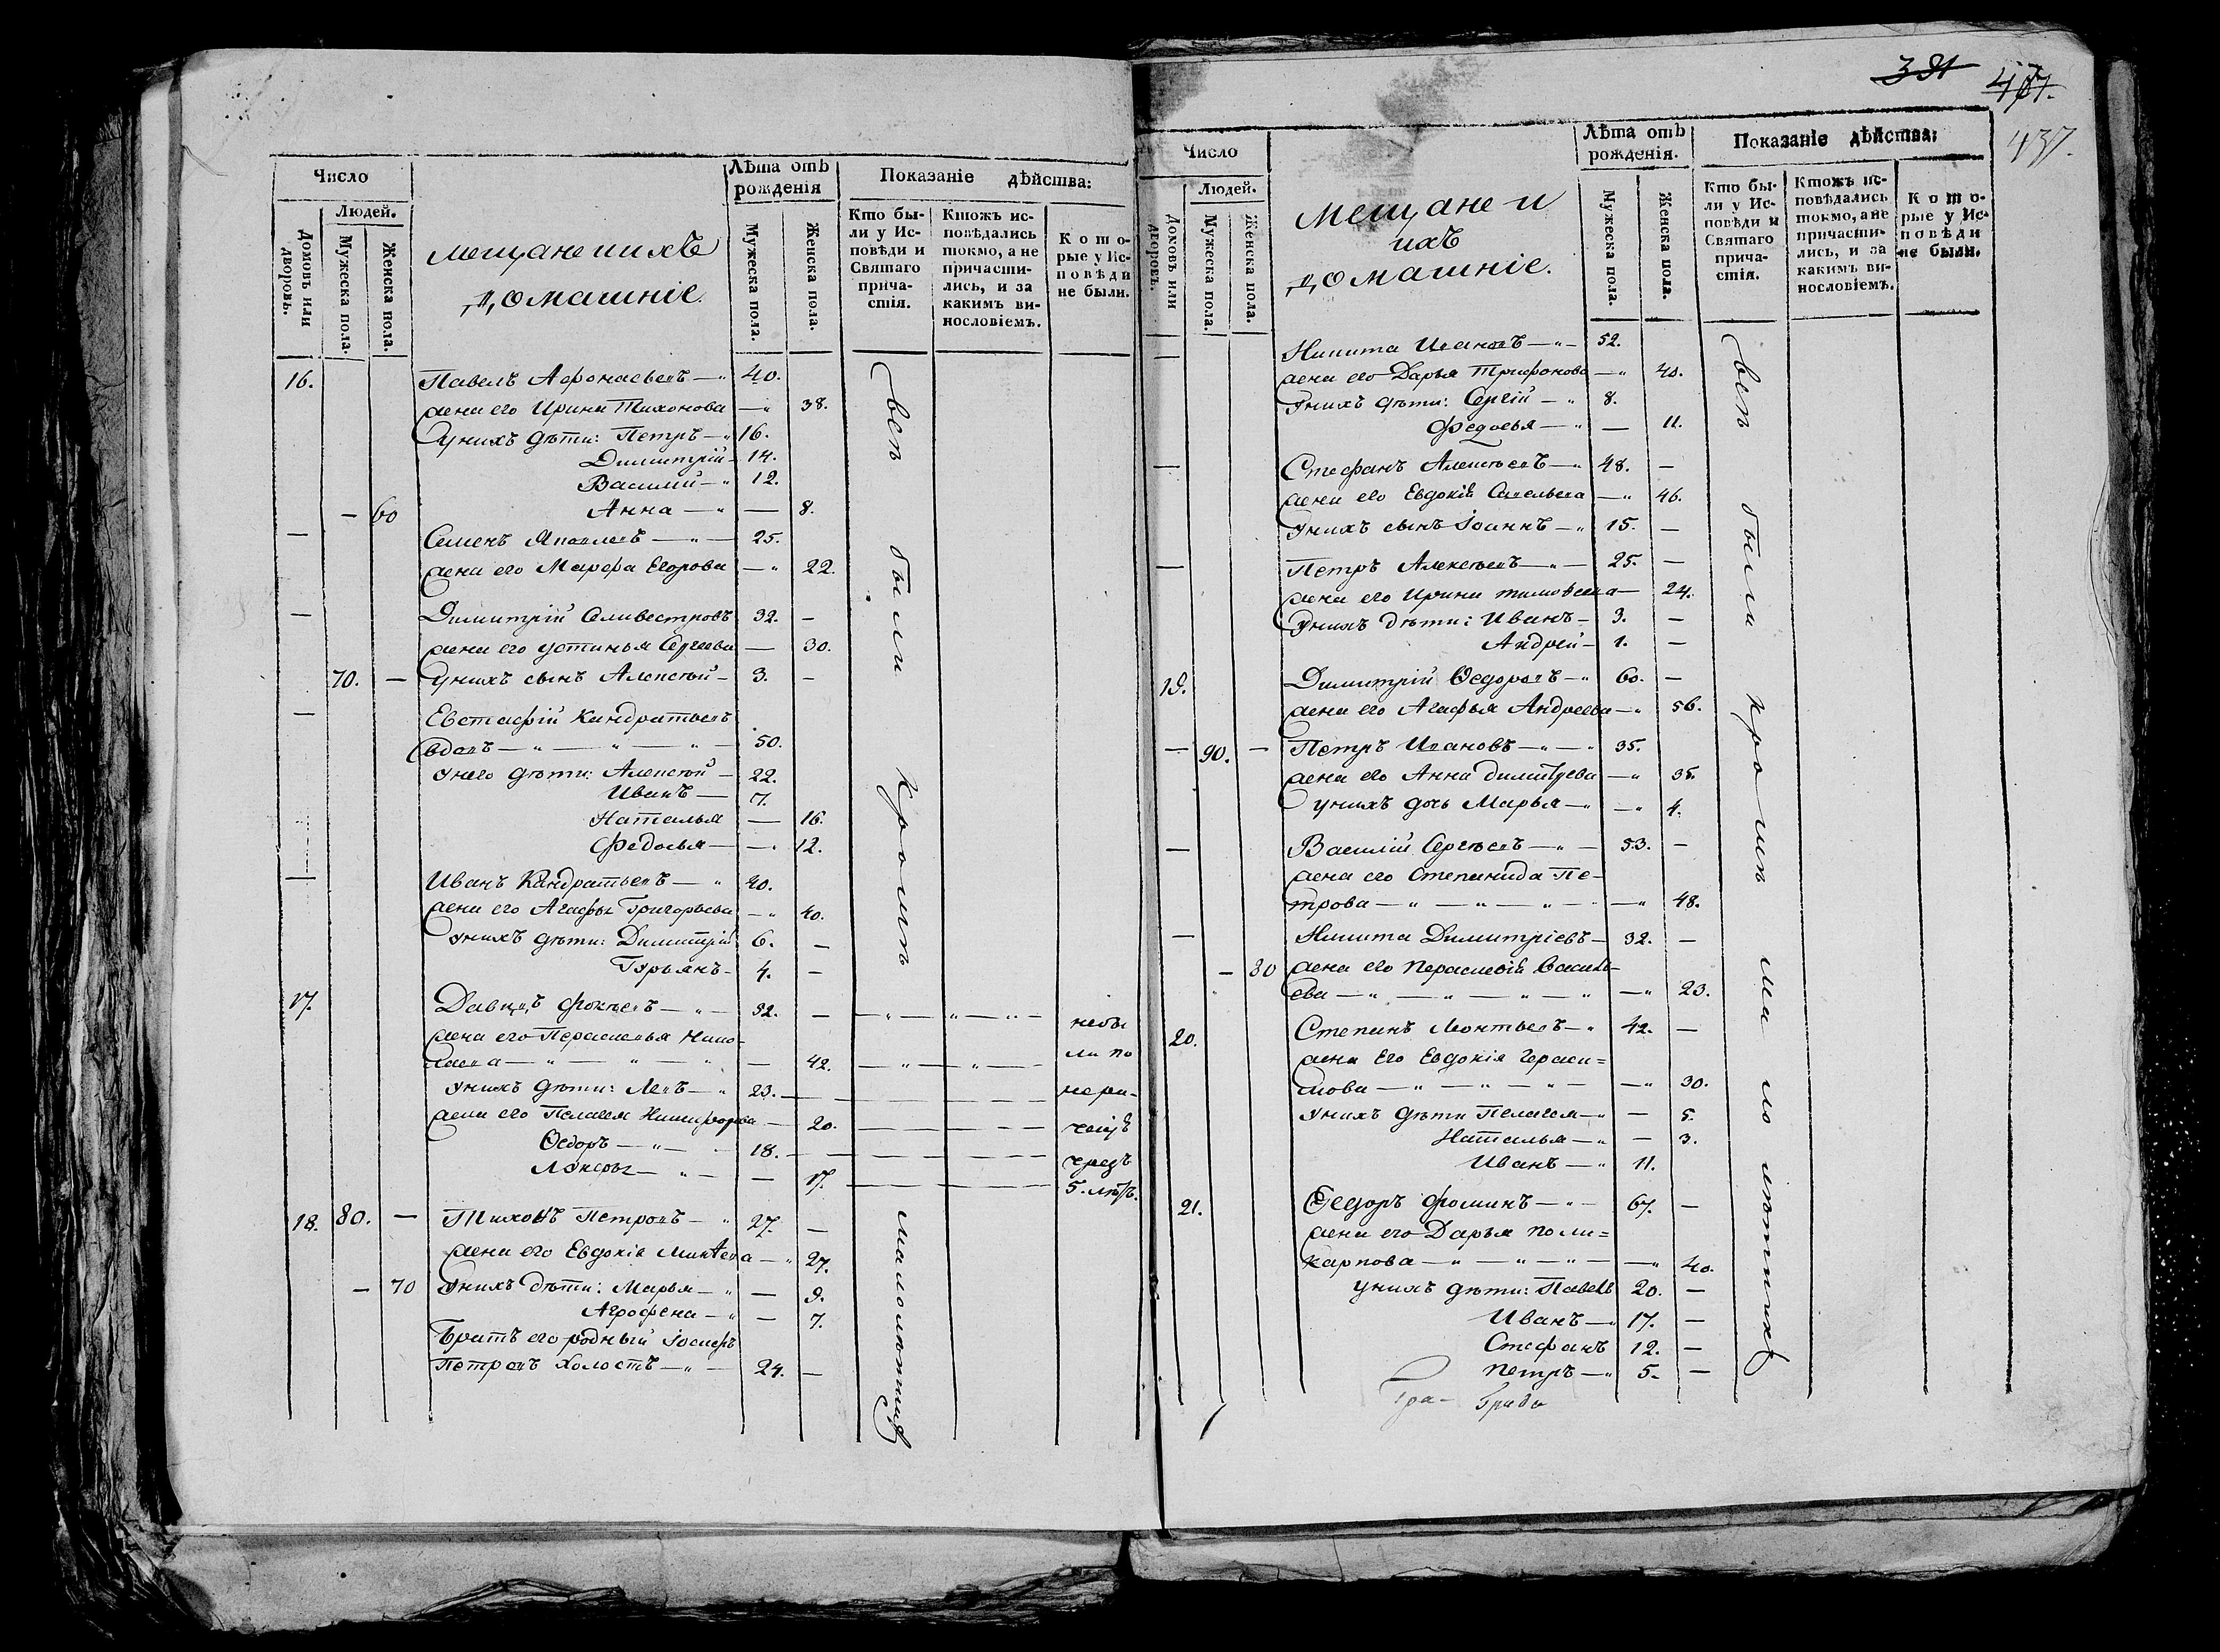 Число
Людей.
Домовъ или дворовъ.
Мужеска пола.
Женска пола.
мещане ихъ
домашніе.
Лѣта отъ
рожденія
Мужеска пола.
Женска пола.
Показаніе дѣйства:
Кто бы-
ли у Ис-
повѣди и
Святаго
прича-
стія.
Ктожъ ис-
повѣдались
токмо, а не
причасти-
лись, и за
какимъ ви-
нословіемъ.
Кото-
рые у Ис-
повѣди
не были.
16. Павелъ Афонасьевъ — 40.
жена его Ирина Тихонова — 38.
У нихъ дѣти: Петръ — 16.
Димитрій — 14.
Василій — 12.
— 60 Анна — — 8.
— Семенъ Яковлевъ — 25.
жена его Марфа Егорова — 22.
— Димитрій Селивестровъ 32. —
жена его Устинья Сергеева — 30.
70. — У нихъ сынъ Алексѣй — 3. —
— Евстафій Кандратьевъ
вдовъ — 50.
У него дѣти: Алексѣй — 22.
Иванъ — 7.
Наталья — 16.
Федосья — 12.
— Иванъ Кандратьевъ — 40.
жена его Агафья Григорьева — 40.
У нихъ дѣти: Димитрій 6. —
Гурьянъ — 4. —
17. Давыдъ Фокѣевъ — 52. —
жена его Парасковья Нико-
лаева — 42.
У нихъ дѣти: Левъ — 23.
жена его Пелагея Никифорова — 20.
Ѳедоръ — 18.
— 17.
небы
ли по
нера-
чрезъ
5. лѣтъ.
18. 80. — Тихонъ Петровъ — 27. —
жена его Евдокія — 27.
— 70 У нихъ дѣти: Марья — — 9.
Агрофена — — 7.
Братъ его родный Іосифъ
Петровъ холостъ — 24. —
всѣ были кромѣ малолѣтных
381
437.
Число
Людей.
Домовъ или дворовъ.
Мужеска пола.
Женска пола.
Мещане и
ихъ
домашніе.
Лѣта отъ
рожденія.
Мужеска пола.
Женска пола.
Показаніе дѣйства:
Кто бы-
ли у Ис-
повѣди и
Святаго
прича-
стія.
Ктожъ ис-
повѣдались
токмо, а не
причасти-
лись, и за
какимъ ви-
нословіемъ.
Кото-
рые у Ис-
повѣди
не были.
— Никита Ивановъ — 52.
жена его Дарья Трифонова — 40.
У нихъ дѣти: Сергій — 8.
Федосья — — 11.
— Стефанъ Алексѣевъ — 48. —
жена его Евдокія Савельева — 46.
У нихъ сынъ Іоаннъ — 15. —
— Петръ Алексѣевъ — 25. —
жена его Ирина Тимофеева — 24.
У нихъ дѣти: Иванъ — 3. —
Андрей — 1. —
19. Димитрій Ѳедоровъ — 60. —
жена его Агафья Андреева — 56.
— 90. — Петръ Ивановъ — 35.
жена его Анна Димитрева — 35.
У нихъ дочь Марья — — 4.
— Василій Сергѣевъ — 53. —
жена его Степанида Пе-
трова — 48.
— Никита Димитріевъ — 32. —
— 80 жена его Парасковія Василь-
ева — 23.
20. Степанъ Леонтьевъ — 42. —
жена Его Евдокія Гераси=
мова — 30.
У нихъ дѣти Пелагея — — 5.
Наталья — — 3.
Иванъ — 11.
21. Ѳедоръ Фоминъ — 67. —
жена его Дарья Поли=
карпова — 40.
У нихъ дѣти: Павелъ 20. —
Иванъ — 17. —
Стефанъ 12. —
Петръ — 5. —
всѣ были кромѣ малолѣтных